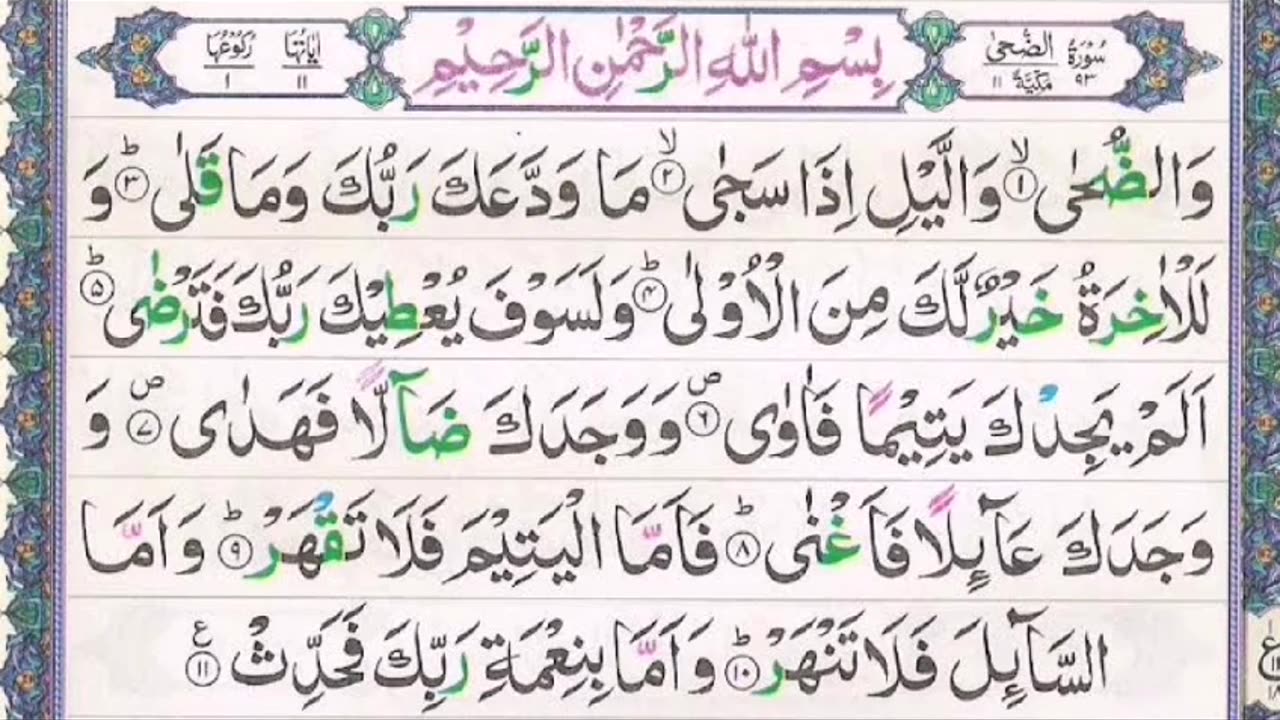 سُوْرَةُ الضُّحٰى ٩٣ مَكِّيَّةٌ ١١
بِسْمِ اللّٰهِ الرَّحْمٰنِ الرَّحِيْمِ
اٰيَاتُهَا ١١ رُكُوْعُهَا ١
وَالضُّحٰى ۙ‏﴿١﴾ وَالَّيْلِ اِذَا سَجٰى ۙ‏﴿٢﴾ مَا وَدَّعَكَ رَبُّكَ وَمَا قَلٰى ؕ‏﴿٣﴾ وَ
لَلْاٰخِرَةُ خَيْرٌ لَّكَ مِنَ الْاُوْلٰى ؕ‏﴿٤﴾ وَلَسَوْفَ يُعْطِيْكَ رَبُّكَ فَتَرْضٰى ؕ‏﴿٥﴾
اَلَمْ يَجِدْكَ يَتِيْمًا فَاٰوٰى ۖ‏﴿٦﴾ وَوَجَدَكَ ضَآلًّا فَهَدٰى ۖ‏﴿٧﴾ وَ
وَجَدَكَ عَآئِلًا فَاَغْنٰى ؕ‏﴿٨﴾ فَاَمَّا الْيَتِيْمَ فَلَا تَقْهَرْ ؕ‏﴿٩﴾ وَاَمَّا
السَّآئِلَ فَلَا تَنْهَرْ ؕ‏﴿١٠﴾ وَاَمَّا بِنِعْمَةِ رَبِّكَ فَحَدِّثْ ﴿١١﴾ ع